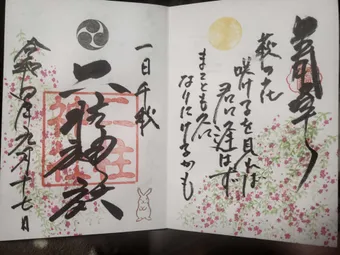 萩の花
咲けるを見れば
君に逢はず
まことも久に
なりにけるかも
一日千秋
二柱神社
二柱神社
令和四年九月十七日